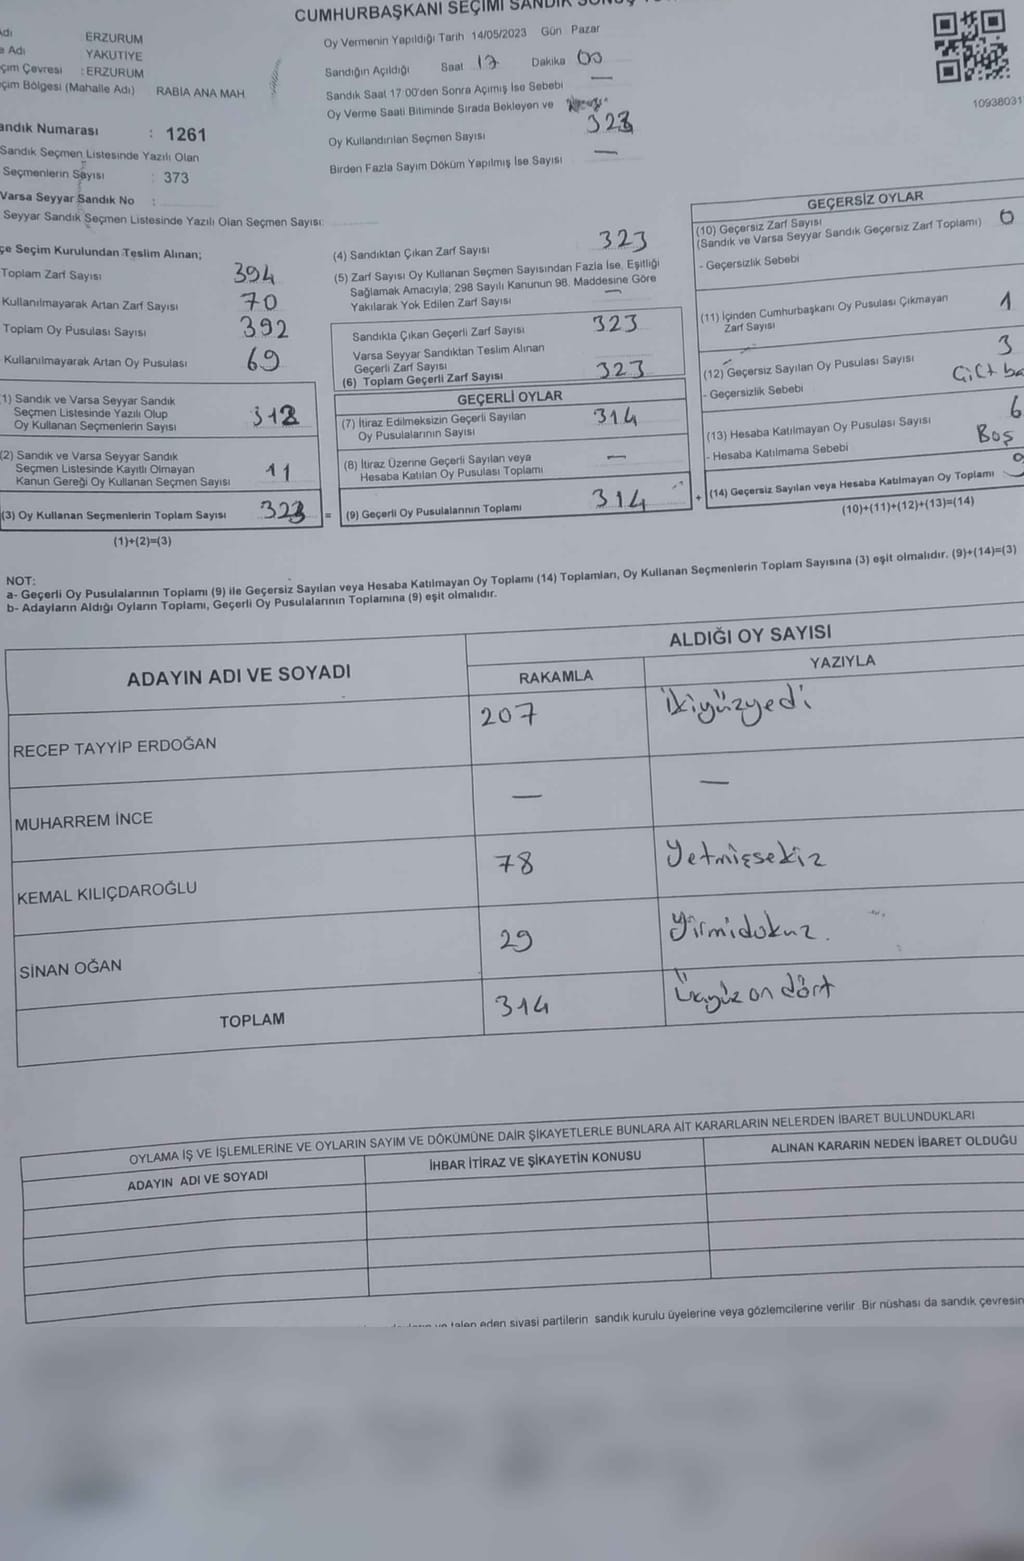 CUMHURBAŞKANI SEÇİMİ SANDIK
ERZURUM
Adı YAKUTİYE
: ERZURUM
(Mahalle Adı) RABİA ANA MAH.
Oy Vermenin Yapıldığı Tarih 14/05/2023 Gün Pazar
Sandığın Açıldığı Saat 17 Dakika 00
Sandık Saat 17:00'den Sonra Açımış İse Sebebi —
Oy Verme Saati Bitiminde Sırada Bekleyen ve
Oy Kullandırılan Seçmen Sayısı 323
Birden Fazla Sayım Döküm Yapılmış İse Sayısı —
10938031
Numarası : 1261
Sandık Seçmen Listesinde Yazılı Olan
Seçmenlerin Sayısı : 373
Varsa Seyyar Sandık No :
Seyyar Sandık Seçmen Listesinde Yazılı Olan Seçmen Sayısı:
Seçim Kurulundan Teslim Alınan;
Toplam Zarf Sayısı 394
Kullanılmayarak Artan Zarf Sayısı 70
Toplam Oy Pusulası Sayısı 392
Kullanılmayarak Artan Oy Pusulası 69
1) Sandık ve Varsa Seyyar Sandık
Seçmen Listesinde Yazılı Olup
Oy Kullanan Seçmenlerin Sayısı 312
(2) Sandık ve Varsa Seyyar Sandık
Seçmen Listesinde Kayıtlı Olmayan
Kanun Gereği Oy Kullanan Seçmen Sayısı 11
(3) Oy Kullanan Seçmenlerin Toplam Sayısı 323 =
(1)+(2)=(3)
(4) Sandıktan Çıkan Zarf Sayısı 323
(5) Zarf Sayısı Oy Kullanan Seçmen Sayısından Fazla İse, Eşitliği
Sağlamak Amacıyla; 298 Sayılı Kanunun 98. Maddesine Göre
Yakılarak Yok Edilen Zarf Sayısı —
Sandıkta Çıkan Geçerli Zarf Sayısı 323
Varsa Seyyar Sandıktan Teslim Alınan
Geçerli Zarf Sayısı
(6) Toplam Geçerli Zarf Sayısı 323
GEÇERLİ OYLAR
(7) İtiraz Edilmeksizin Geçerli Sayılan
Oy Pusulalarının Sayısı 314
(8) İtiraz Üzerine Geçerli Sayılan veya
Hesaba Katılan Oy Pusulası Toplamı —
(9) Geçerli Oy Pusulalarının Toplamı 314 +
GEÇERSİZ OYLAR
(10) Geçersiz Zarf Sayısı
(Sandık ve Varsa Seyyar Sandık Geçersiz Zarf Toplamı) 0
- Geçersizlik Sebebi
(11) İçinden Cumhurbaşkanı Oy Pusulası Çıkmayan
Zarf Sayısı 1
(12) Geçersiz Sayılan Oy Pusulası Sayısı 3
- Geçersizlik Sebebi Çift
(13) Hesaba Katılmayan Oy Pusulası Sayısı 6
- Hesaba Katılmama Sebebi Boş
(14) Geçersiz Sayılan veya Hesaba Katılmayan Oy Toplamı
(10)+(11)+(12)+(13)=(14)
NOT:
a- Geçerli Oy Pusulalarının Toplamı (9) ile Geçersiz Sayılan veya Hesaba Katılmayan Oy Toplamı (14) Toplamları, Oy Kullanan Seçmenlerin Toplam Sayısına (3) eşit olmalıdır. (9)+(14)=(3)
b- Adayların Aldığı Oyların Toplamı, Geçerli Oy Pusulalarının Toplamına (9) eşit olmalıdır.
ADAYIN ADI VE SOYADI ALDIĞI OY SAYISI
RAKAMLA YAZIYLA
RECEP TAYYİP ERDOĞAN 207 ikiyüzyedi
MUHARREM İNCE — —
KEMAL KILIÇDAROĞLU 78 Yetmişsekiz
SİNAN OĞAN 29 Yirmidokuz.
TOPLAM 314 Üçyüz on dört
OYLAMA İŞ VE İŞLEMLERİNE VE OYLARIN SAYIM VE DÖKÜMÜNE DAİR ŞİKAYETLERLE BUNLARA AİT KARARLARIN NELERDEN İBARET BULUNDUKLARI
ADAYIN ADI VE SOYADI İHBAR İTİRAZ VE ŞİKAYETİN KONUSU ALINAN KARARIN NEDEN İBARET OLDUĞU
talep eden siyasi partilerin sandık kurulu üyelerine veya gözlemcilerine verilir. Bir nüshası da sandık